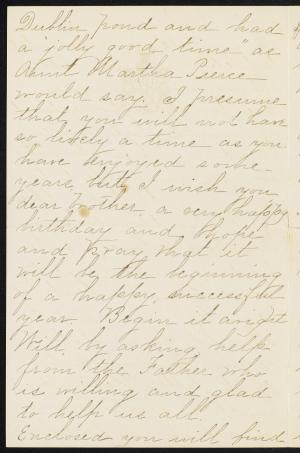 Dublin pond and had
a jolly good time" as
Aunt Martha Pierce
would say. I presume
that you will not have
so lively a time as you
have enjoyed some
years, but I wish you
dear brother, a very happy
bithday and hope
and pray that it
will be the beginning
of a happy, successful
year. Begin it aright
Will, by asking help
from the Father who
is willing and glad
to help us all.
Enclosed you will find